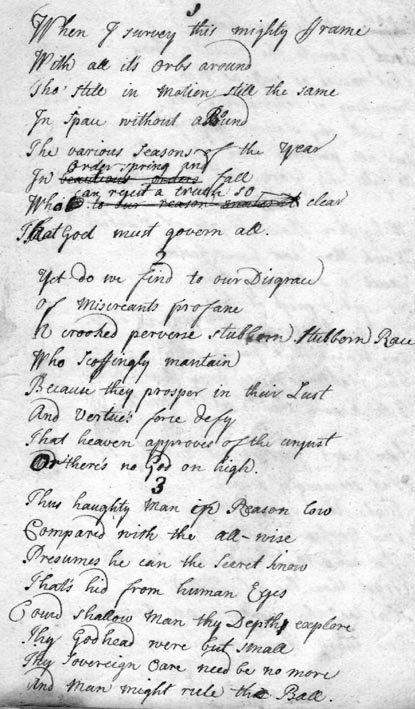 1
When I survey this mighty Frame
With all its Orbs around
Tho' still in Motion still the same
In Space without a Bound
The various Seasons of the Year
Order spring and
In beauteous Orders fall
can resist a truth so
Who to our reason makes it clear
That God must govern all.
2
Yet do we find to our Disgrace
Of Miscreants profane
A crooked perverse stubborn Stubborn Race
Who Scoffingly mantain
Because they prosper in their Lust
And Vertue's force defy
That heaven approves of the unjust
Or there's no God on high.
3
Thus haughty Man in Reason low
Compared with the all-wise
Presumes he can the Secret know
That's hid from human Eyes
Cou'd shallow Man thy Depths explore
Thy Godhead were but small
Thy Sovereign Care need be no more
And Man might rule the Ball.